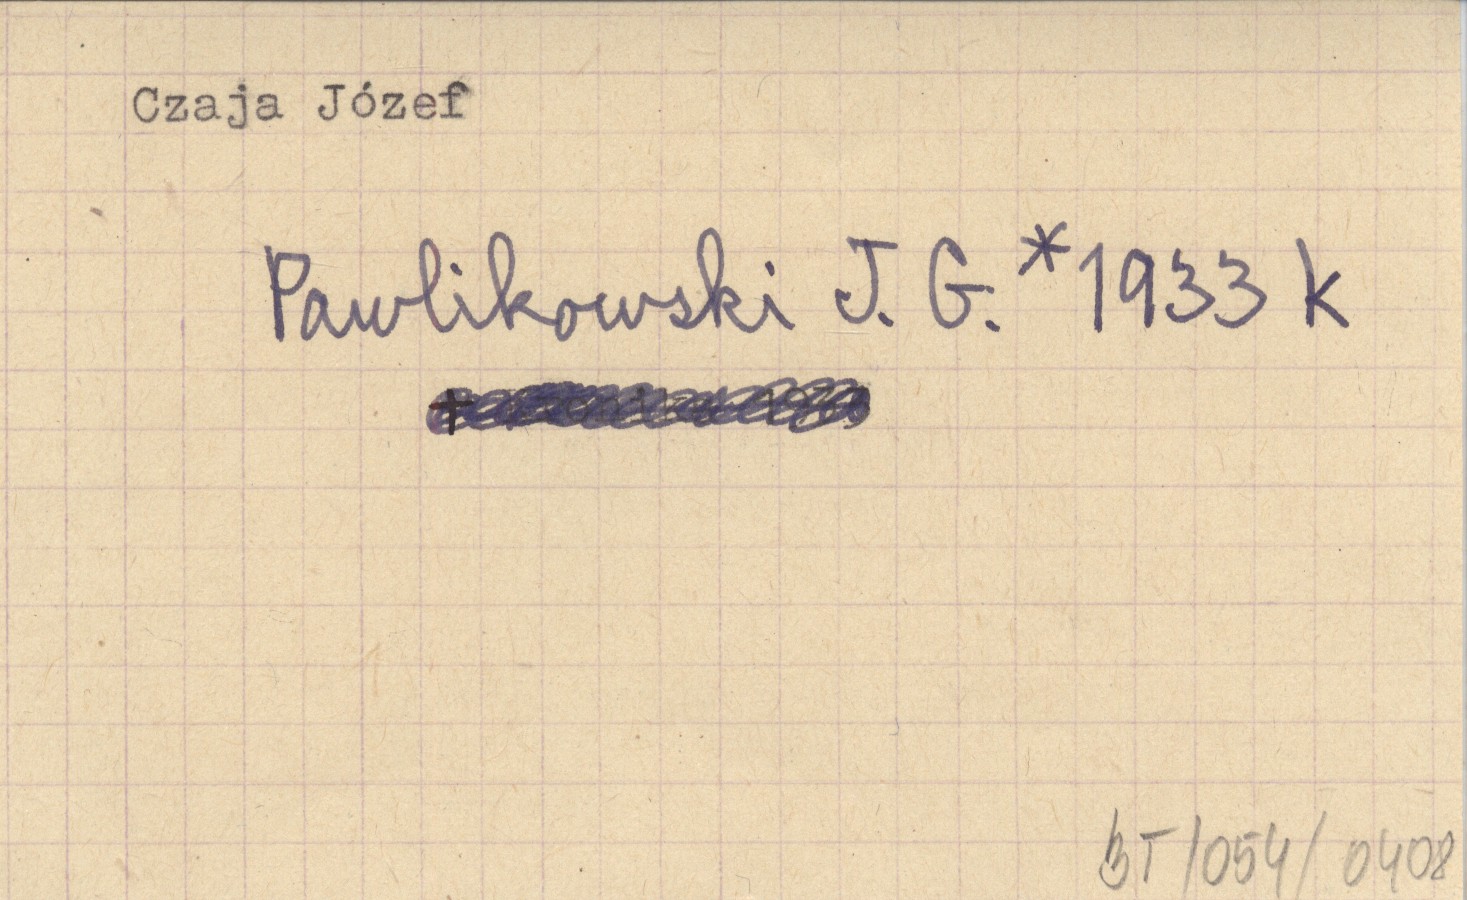 Czaja Józef
Pawlikowski J. G. * 1933 k
BT/054/0408